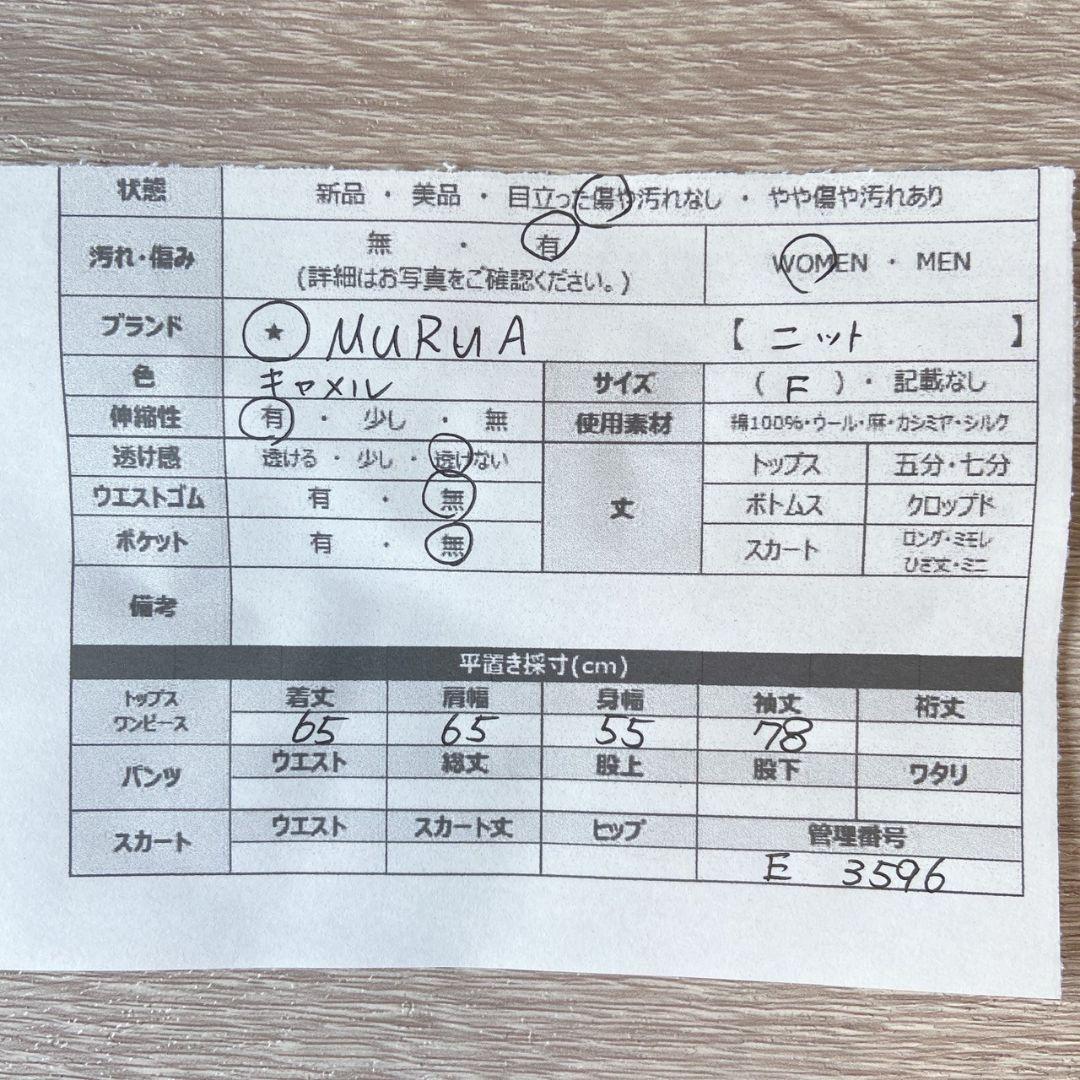 状態 新品 ・ 美品 ・ 目立った傷や汚れなし ・ やや傷や汚れあり
汚れ・傷み 無 ・ 有 WOMEN ・ MEN
(詳細はお写真をご確認ください。)
ブランド ★ MURUA 【 ニット 】
色 キャメル サイズ ( F ) ・ 記載なし
伸縮性 有 ・ 少し ・ 無 使用素材 綿100%・ウール・麻・カシミヤ・シルク
透け感 透ける ・ 少し ・ 透けない 丈 トップス 五分・七分
ウエストゴム 有 ・ 無 ボトムス クロップド
ポケット 有 ・ 無 スカート ロング・ミモレ
ひざ丈・ミニ
備考
平置き採寸(cm)
トップス
ワンピース 着丈 肩幅 身幅 袖丈 裄丈
65 65 55 78
パンツ ウエスト 総丈 股上 股下 ワタリ
スカート ウエスト スカート丈 ヒップ 管理番号
E 3596